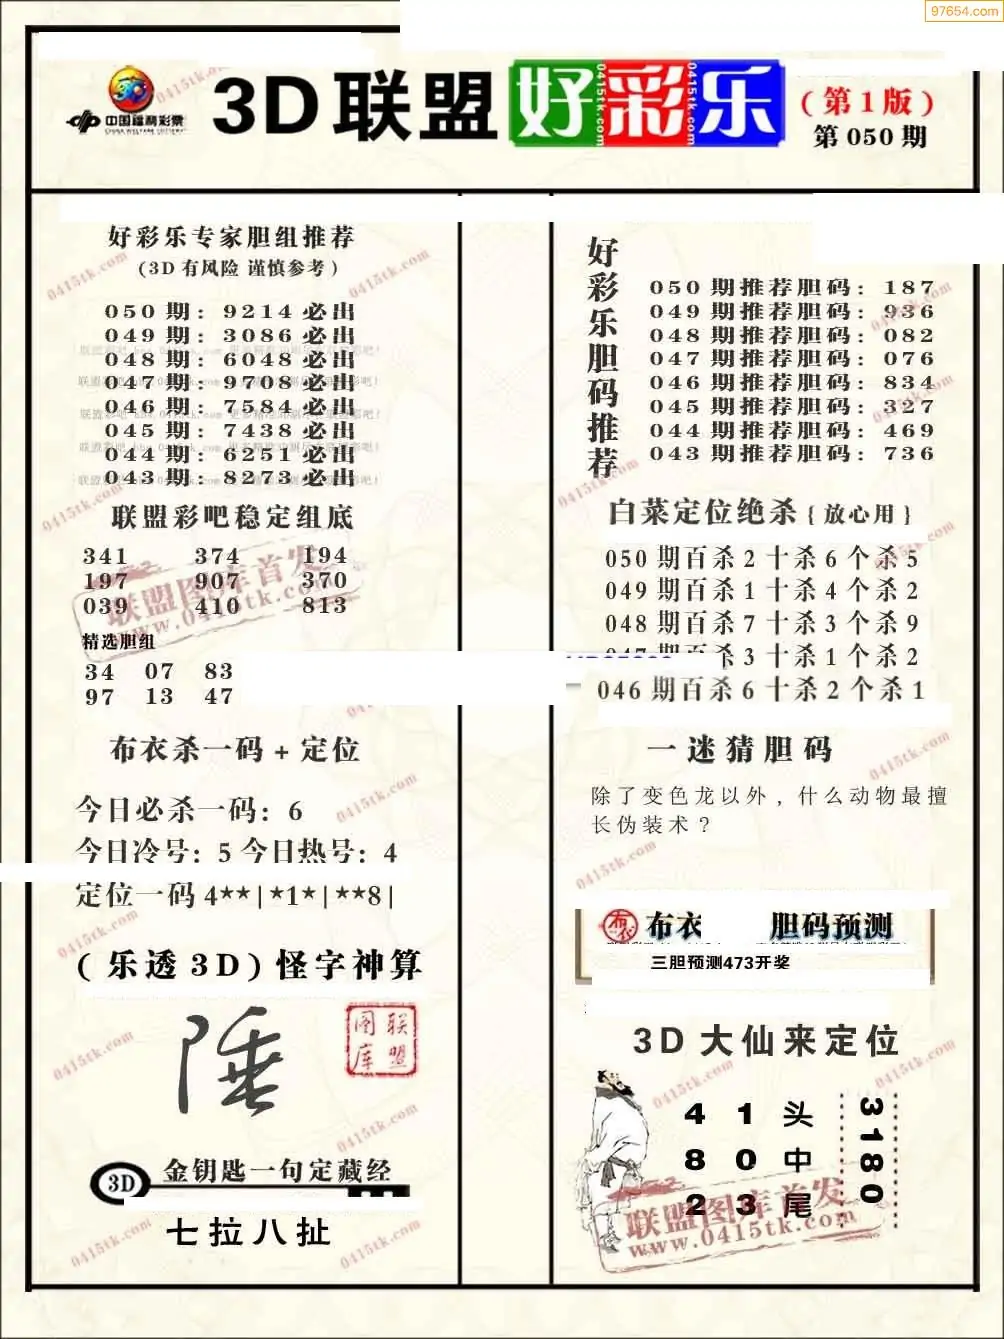 97654.com
中国福利彩票
CHINA WELFARE LOTTERY
3D联盟好彩乐
(第1版)
第050期
好彩乐专家胆组推荐
(3D有风险 谨慎参考)
050期: 9214必出
049期: 3086必出
048期: 6048必出
047期: 9708必出
046期: 7584必出
045期: 7438必出
044期: 6251必出
043期: 8273必出
联盟彩吧稳定组底
341 374 194
197 907 370
039 410 813
精选胆组
34 07 83
97 13 47
布衣杀一码+定位
今日必杀一码: 6
今日冷号: 5 今日热号: 4
定位一码4**|*1*|**8|
(乐透3D)怪字神算
陲
联盟图库
3D
金钥匙一句定藏经
七拉八扯
好彩乐胆码推荐
050期推荐胆码: 187
049期推荐胆码: 936
048期推荐胆码: 082
047期推荐胆码: 076
046期推荐胆码: 834
045期推荐胆码: 327
044期推荐胆码: 469
043期推荐胆码: 736
白菜定位绝杀{放心用}
050期百杀2十杀6个杀5
049期百杀1十杀4个杀2
048期百杀7十杀3个杀9
047期百杀3十杀1个杀2
046期百杀6十杀2个杀1
一迷猜胆码
除了变色龙以外,什么动物最擅
长伪装术?
布衣 布衣 胆码预测
三胆预测473开奖
3D大仙来定位
4 1 头
8 0 中
2 3 尾
3180
联盟图库首发
www.0415tk.com
联盟图库首发
www.0415tk.com
0415tk.com